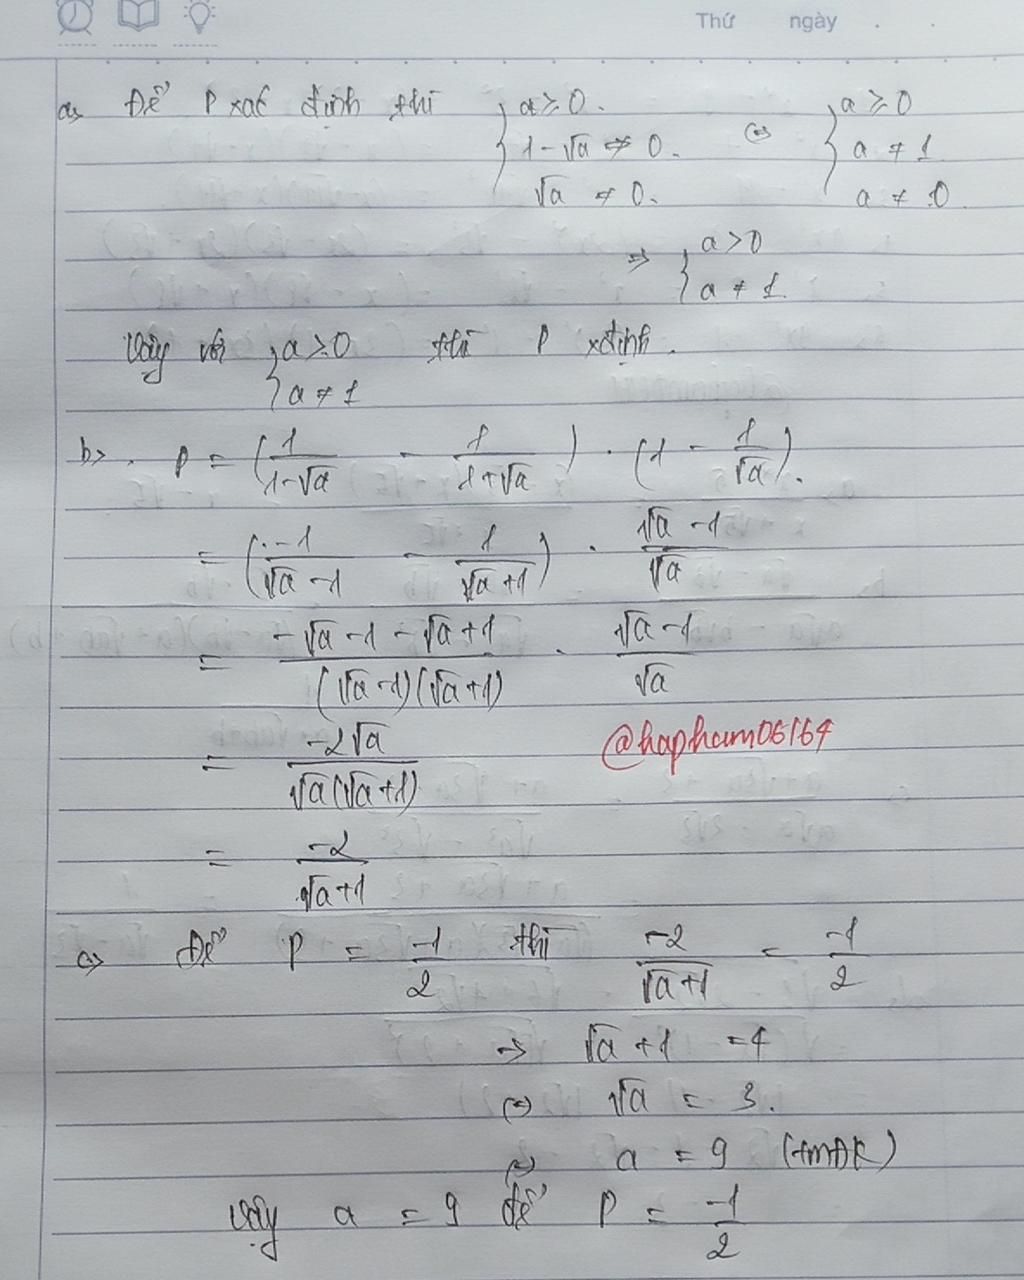 Thứ ngày . .
a, Để P xác định thì { a ≥ 0. 1 - √a ≠ 0. √a ≠ 0. (=) { a ≥ 0 a ≠ 1 a ≠ 0
=> { a > 0 a ≠ 1.
Vậy với { a > 0 a ≠ 1 thì P xđịnh.
b, P = (1/(1-√a) - 1/(1+√a)) · (1 - 1/√a).
= (-1/(√a - 1) - 1/(√a + 1)) · (√a - 1)/√a
= (-√a - 1 - √a + 1)/((√a - 1)(√a + 1)) · (√a - 1)/√a
= -2√a/(√a(√a + 1))
@hapham06164
= -2/(√a + 1)
c, Để P = -1/2 thì -2/(√a + 1) = -1/2
=> √a + 1 = 4
(=) √a = 3.
(=) a = 9 (tmĐK)
Vậy a = 9 để P = -1/2